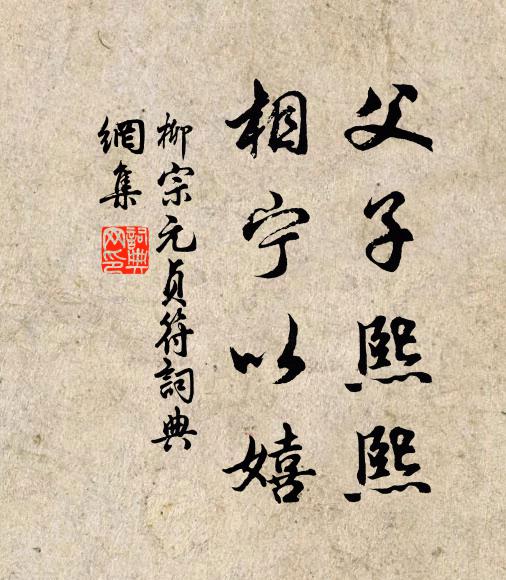 父子熙熙
相宁以嬉
柳宗元貞符詞典
網集
詞典
网印